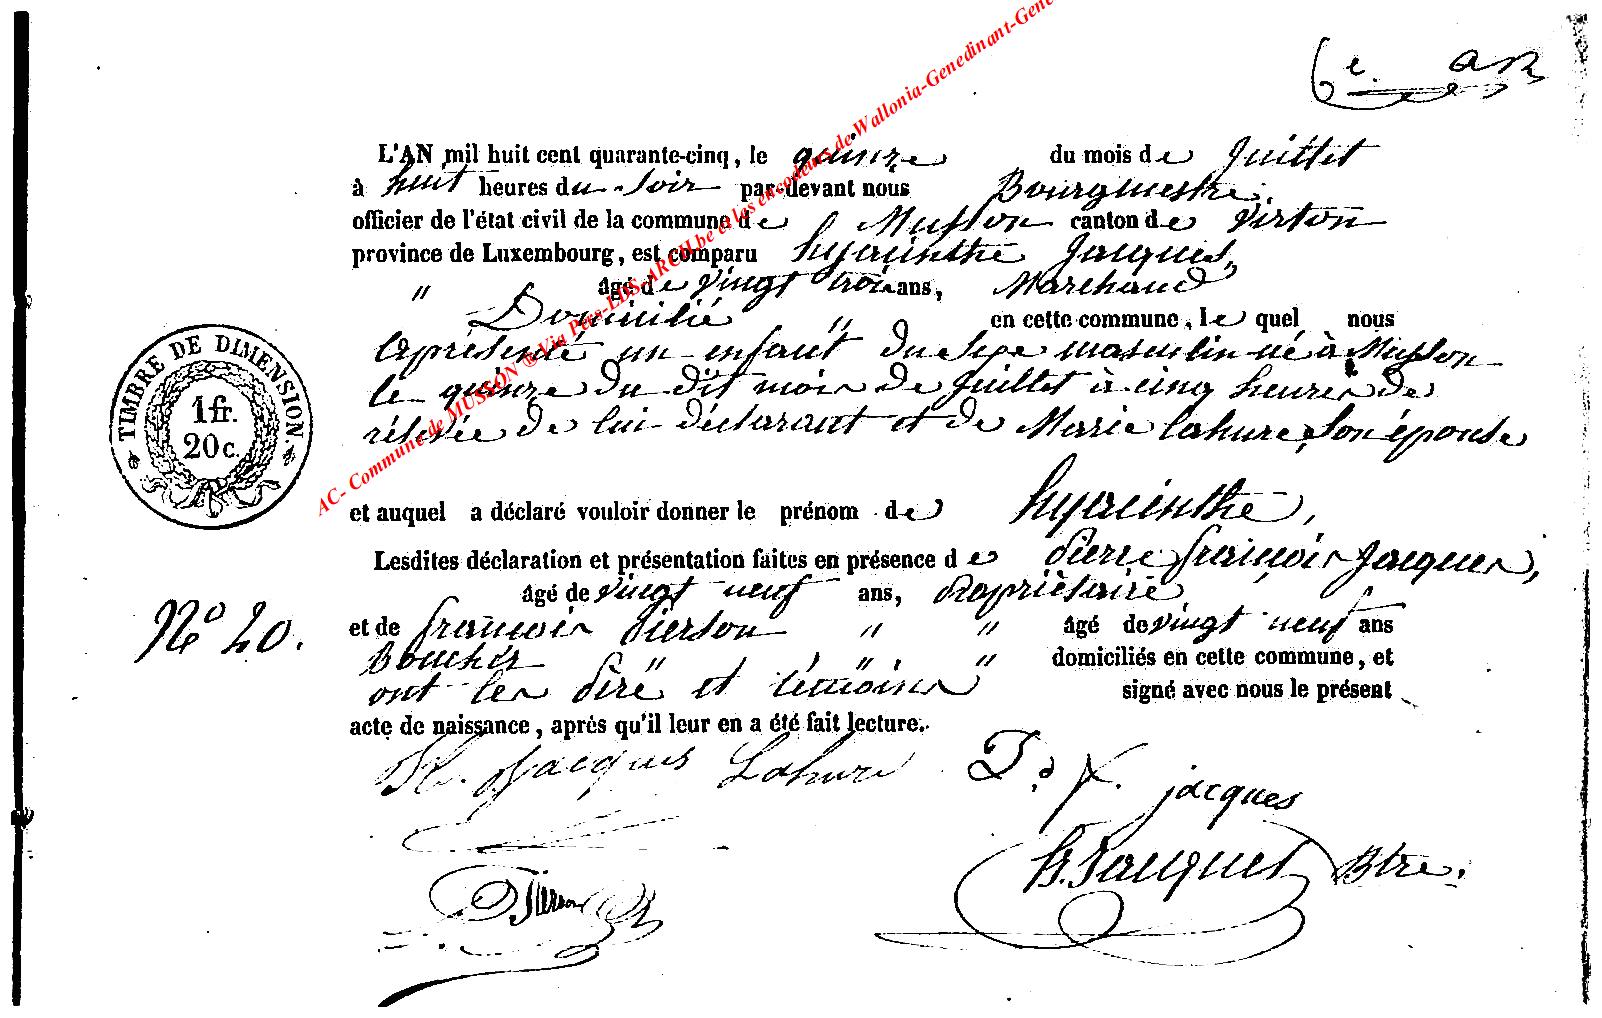 6e. AR
L'AN mil huit cent quarante-cinq, le quinze du mois de Juillet
à huit heures du soir par devant nous Bourgmestre
officier de l'état civil de la commune de Musson canton de Virton
province de Luxembourg, est comparu hyacinthe Jacques,
" âgé de vingt trois ans, Marchand
Domicilié " en cette commune, le quel nous
a présenté un enfant du sexe masculin né à Musson
le quinze du dit mois de Juillet à cinq heures de
relevée de lui déclarant et de Marie Lahure, son épouse
et auquel a déclaré vouloir donner le prénom de hyacinthe,
Lesdites déclaration et présentation faites en présence de pierre françois Jacques,
âgé de vingt neuf ans, Propriètaire
et de françois pierson " " âgé de vingt neuf ans
Boucher " " " domiciliés en cette commune, et
ont les père et témoins signé avec nous le présent
acte de naissance, après qu'il leur en a été fait lecture.
TIMBRE DE DIMENSION
1 fr.
20 c.
No 20.
H. Jacques Lahure P. f. jacques
Pierson Btre.
AC- Commune de MUSSON ® Via Pers-EDS-ARCH.be et les encodeurs de Wallonia-Genedinant-Gene